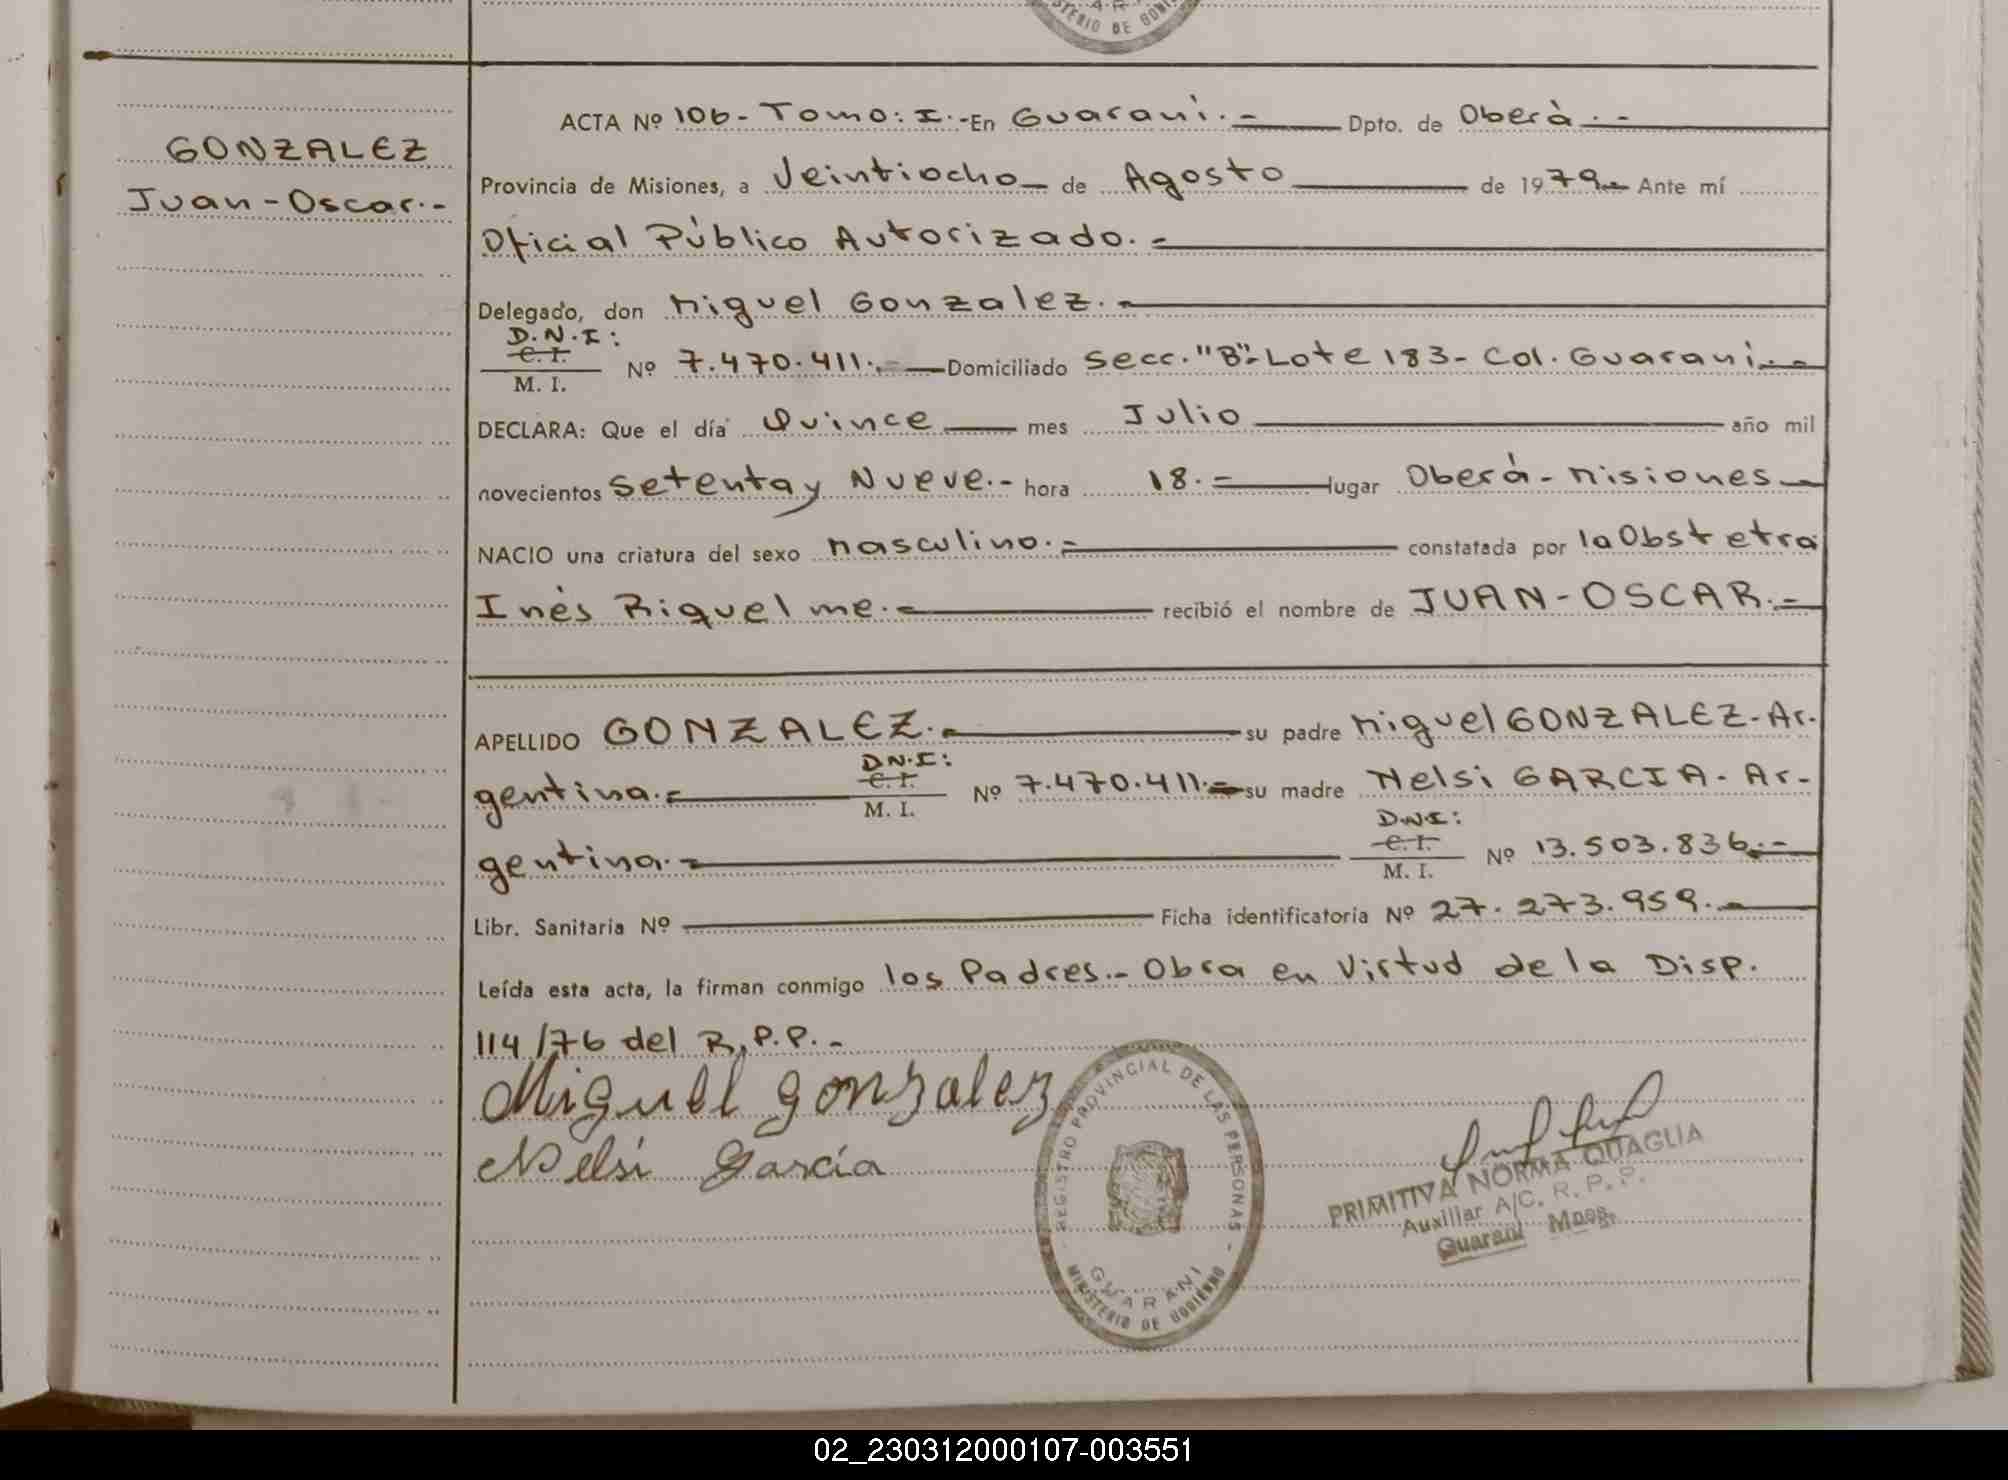 STERIO DE GOBIE
GONZALEZ
Juan-Oscar.-
ACTA Nº 106- Tomo: I.- En Guaraní.- Dpto. de Oberá.-
Provincia de Misiones, a Veintiocho de Agosto de 1979.- Ante mí
Oficial Público Autorizado.-
Delegado, don Miguel Gonzalez.-
D.N.I:
C.I.
M. I.
Nº 7.470.411.- Domiciliado Secc. "B"- Lote 183- Col. Guaraní.-
DECLARA: Que el día Quince mes Julio año mil
novecientos Setenta y Nueve.- hora 18.- lugar Oberá- Misiones-
NACIO una criatura del sexo Masculino.- constatada por la Obstetra
Inés Riquelme.- recibió el nombre de JUAN-OSCAR.-
APELLIDO GONZALEZ.- su padre Miguel GONZALEZ- Ar-
D.N.I:
C.I.
M. I.
gentina.- Nº 7.470.411.- su madre Nelsi GARCIA- Ar-
D.N.I:
C.I.
M. I.
gentina.- Nº 13.503.836.-
Libr. Sanitaria Nº Ficha identificatoria Nº 27.273.959.-
Leída esta acta, la firman conmigo los Padres.- Obra en Virtud de la Disp.
114/76 del R.P.P.-
Miguel Gonzalez
Nelsi Garcia
REGISTRO PROVINCIAL DE LAS PERSONAS
GUARANI
MINISTERIO DE GOBIERNO
PRIMITIVA NORMA QUAGLIA
Auxiliar A/C. R. P. P.
Guaraní Mnes.
02_230312000107-003551